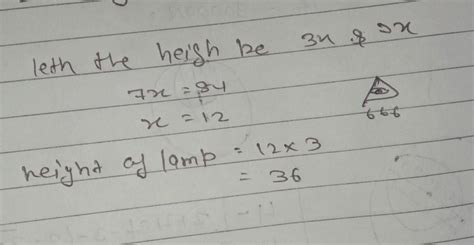 leth the heigh be 3x & 9x
7x = 84
x = 12
666
height of lamp = 12 × 3
= 36